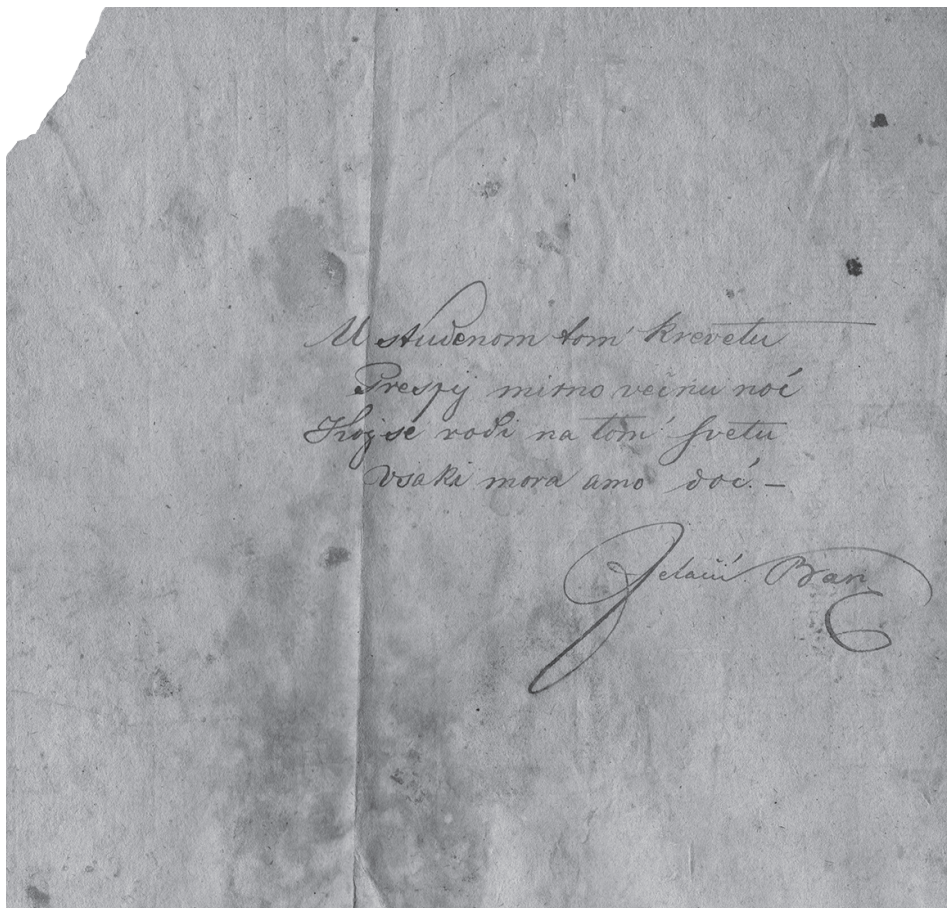 U studenom tom krevetu
Prespij mirno večnu noć
Koj se rodi na tom svetu
Vsaki mora amo doć. –
Jelačić Ban